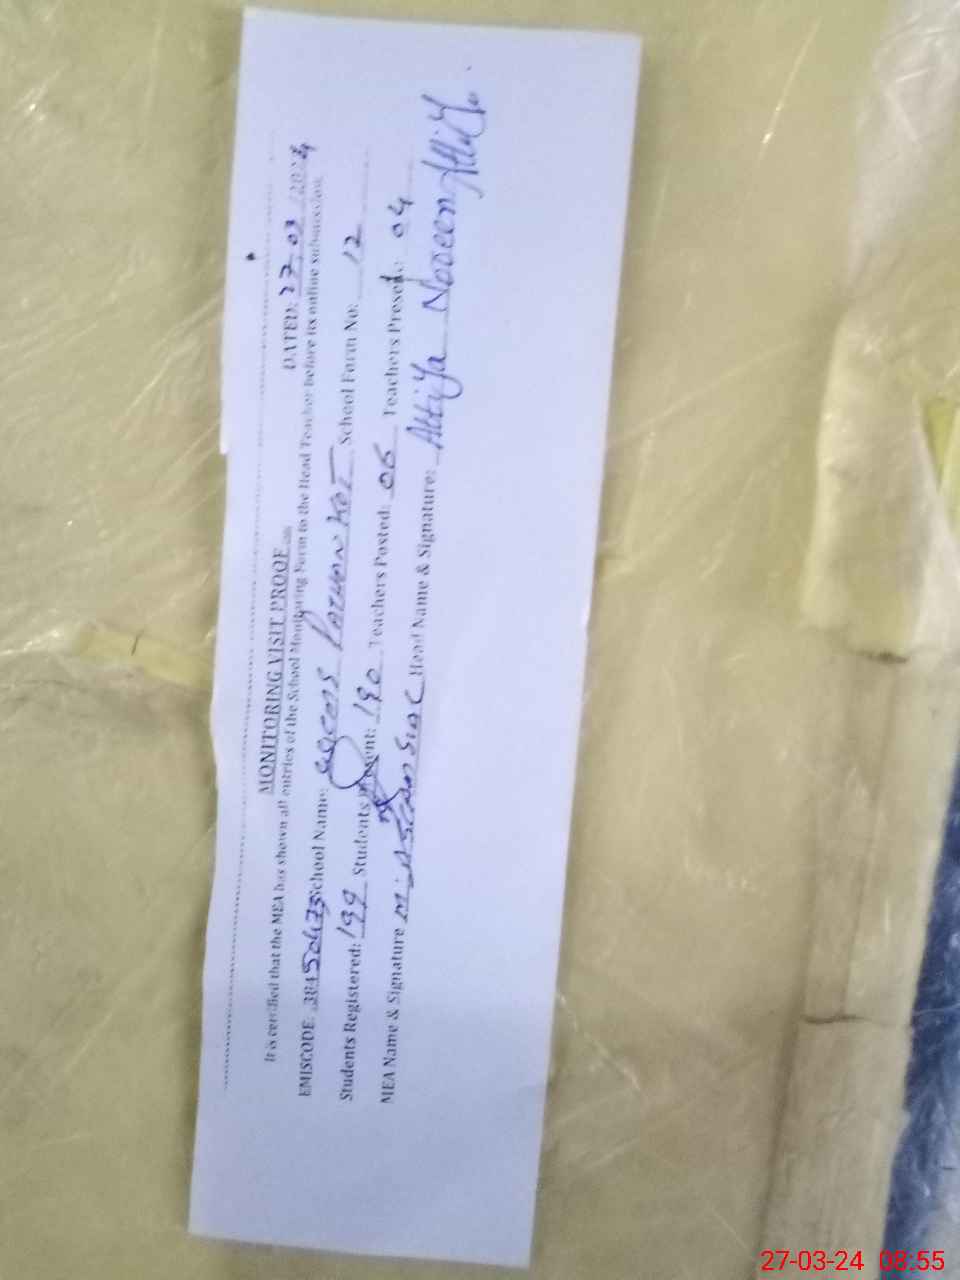 MONITORING VISIT PROOF
DATED: 27.03/2024
It is certified that the MEA has shown all entries of the School Monitoring Form to the Head Teacher before its online submission.
EMISCODE: School Name: School Form No: 12
Students Registered: 199 Students Present: 190 Teachers Posted: 06 Teachers Present: 04
MEA Name & Signature Head Name & Signature: Attiya Noreen
27-03-24 08:55